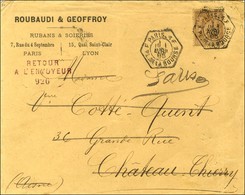 ROUBAUDI & GEOFFROY
RUBANS & SOIERIES
7, Rue du 4 Septembre 15, Quai Saint-Clair
PARIS LYON
RETOUR
A L'ENVOYEUR
926
Paris
Vve Cotté-Quint
36 Grande Rue
Château Thierry
(Aisne)